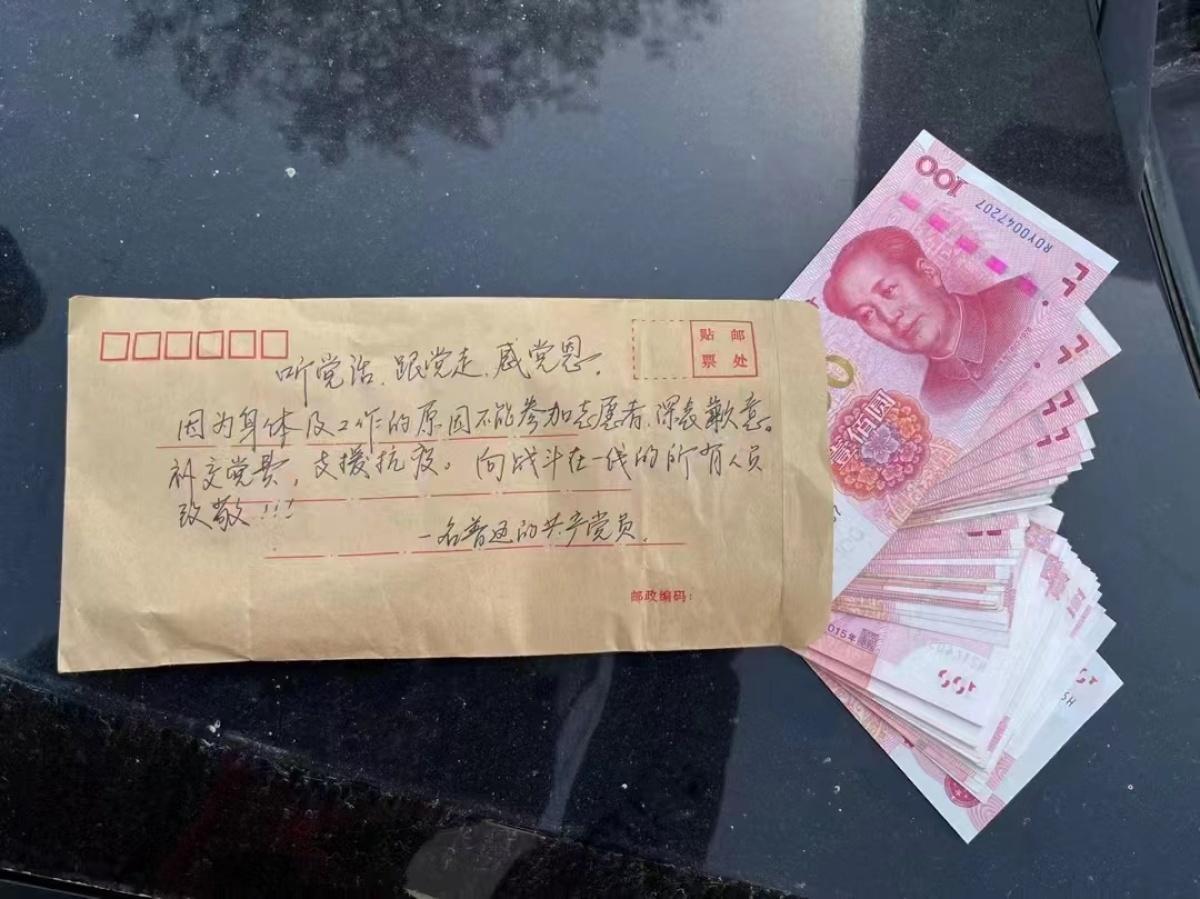 贴 邮
票 处
听党话、跟党走、感党恩。
因为身体及工作的原因不能参加志愿者,深表歉意。
补交党费,支援抗疫。向战斗在一线的所有人员
致敬!!!
一名普通的共产党员。
邮政编码:
100
R0YD047207
壹佰圆
2015年
100
HS